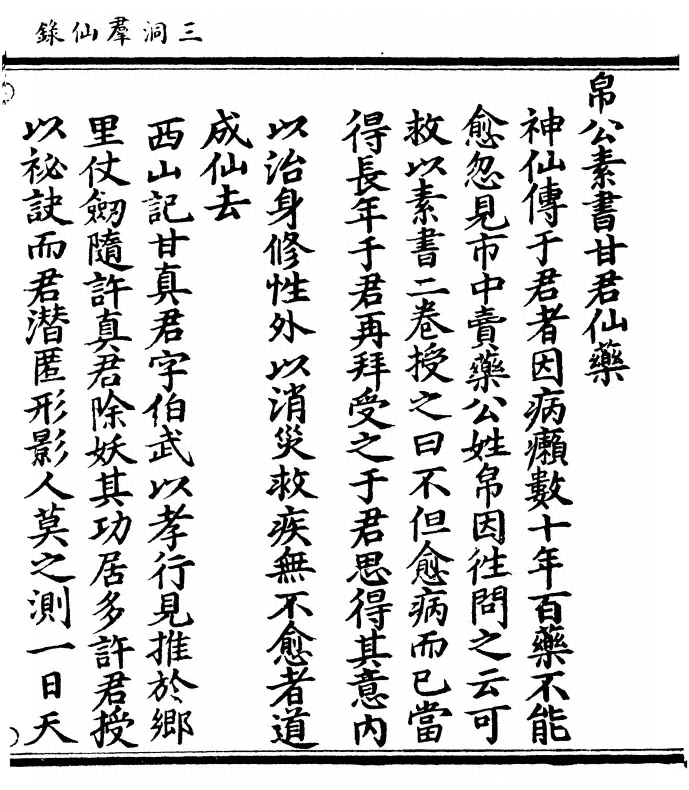 三洞羣仙錄
帛公素書甘君仙藥
神仙傳于君者因病癩數十年百藥不能
愈忽見市中賣藥公姓帛因往問之云可
救以素書二卷授之曰不但愈病而已當
得長年于君再拜受之于君思得其意內
以治身修性外以消災救疾無不愈者道
成仙去
西山記甘真君字伯武以孝行見推於鄉
里仗劒隨許真君除妖其功居多許君授
以祕訣而君潛匿形影人莫之測一日天